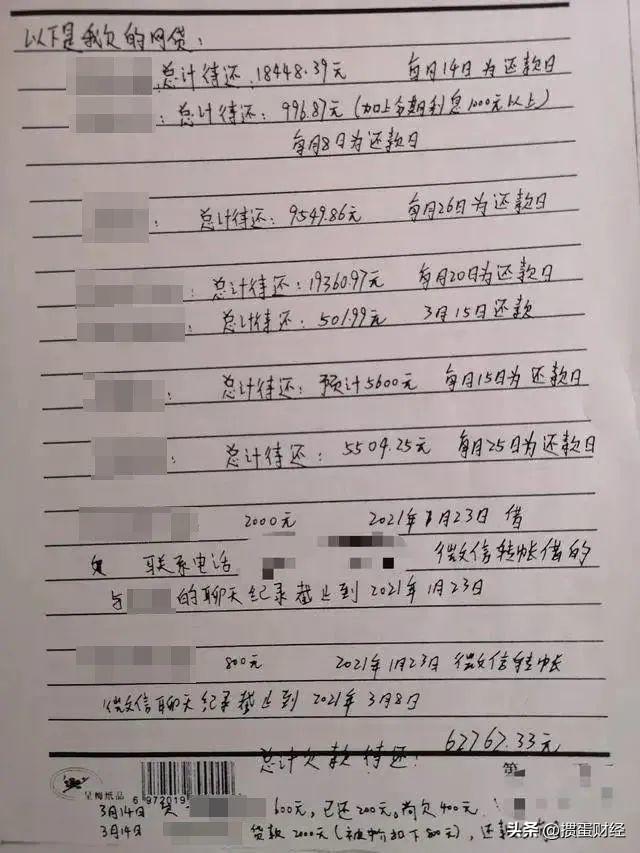 以下是我欠的网贷：
总计待还：18448.39元 每月14日为还款日
：总计待还：996.87元（加上多期利息1000元以上）
每月8日为还款日
：总计待还：9549.86元 每月26日为还款日
：总计待还：19360.97元 每月20日为还款日
：总计待还：501.99元 3月15日还款
总计待还：预计5600元 每月15日为还款日
：总计待还：5504.25元 每月25日为还款日
2000元 2021年1月23日借
联系电话 微信转帐借的
与 的聊天纪录截止到2021年1月23日
800元 2021年1月23日微信转帐
微信聊天纪录截止到2021年3月8日
总计欠款待还：62762.33元
呈梅纸品 6 972019 第
3月14日 600元，已还200元，尚欠400元
3月14日 贷款2000元（被 扣下800元），还款
头条 @掼蛋财经